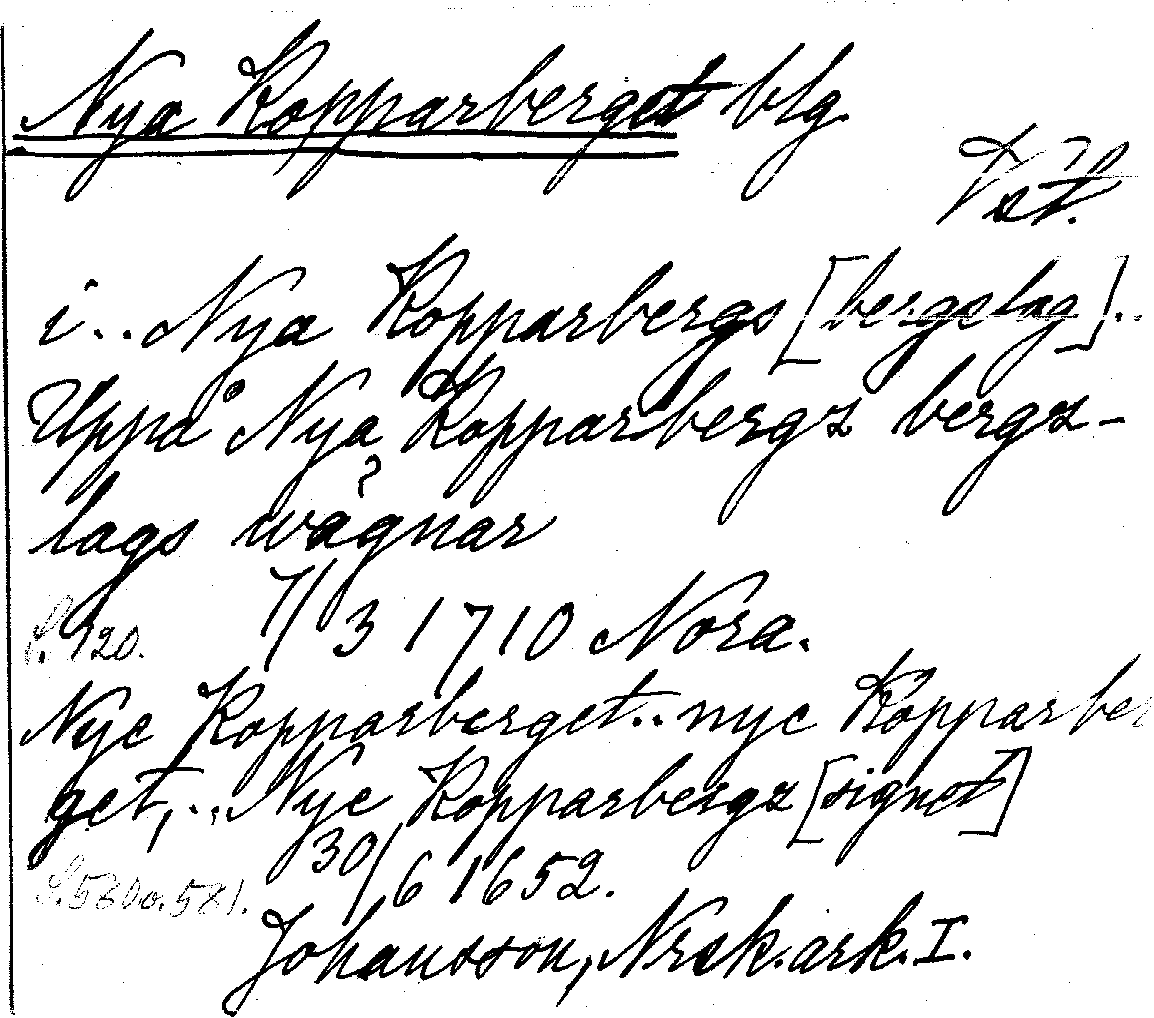 Nya Kopparberget blg.
Vstl.
i.. Nya Kopparbergs [bergslag]..
Uppå Nya Kopparbergz bergz-
lags wägnar
?
s. 120. 7/3 1710 Nora.
Nye Kopparberget.. nye Kopparber
get,.. Nye Kopparbergz [signet]
S. 580 o. 581. 30/6 1652.
Johansson, Nrsk. ark. I.